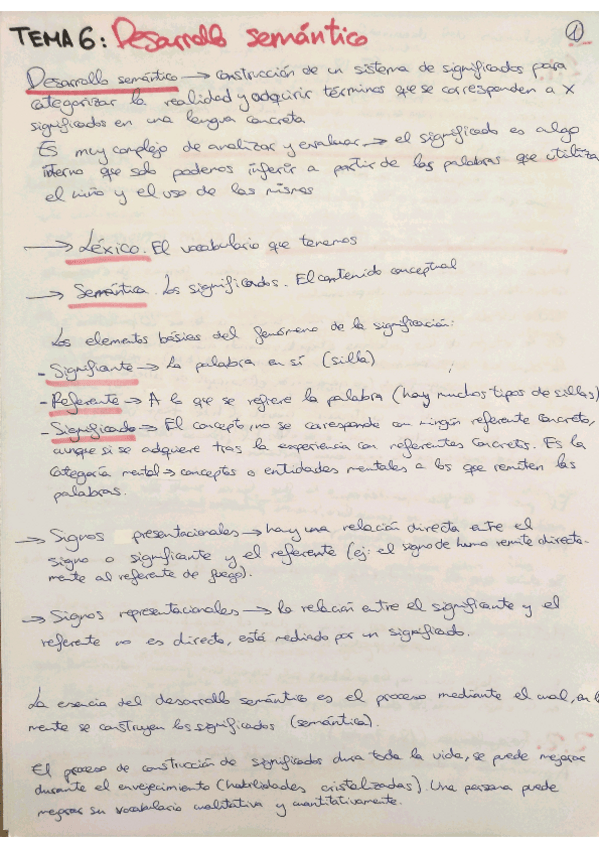 TEMA 6: Desarrollo semántico
1
Desarrollo semántico → construcción de un sistema de significados para
categorizar la realidad y adquirir términos que se corresponden a X
significados en una lengua concreta
Es muy complejo de analizar y evaluar → el significado es algo
interno que solo podemos inferir a partir de las palabras que utiliza
el niño y el uso de las mismas
→ Léxico. El vocabulario que tenemos
→ Semántica. Los significados. El contenido conceptual
Los elementos básicos del fenómeno de la significación:
- Significante → La palabra en sí (silla)
- Referente → A lo que se refiere la palabra (hay muchos tipos de sillas)
- Significado → El concepto, no se corresponde con ningún referente concreto,
aunque si se adquiere tras la experiencia con referentes concretos. Es la
categoría mental → conceptos o entidades mentales a los que remiten las
palabras.
→ Signos presentacionales → hay una relación directa entre el
signo o significante y el referente (ej: el signo de humo remite directa-
mente al referente de fuego).
→ Signos representacionales → la relación entre el significante y el
referente no es directo, está mediado por un significado.
La esencia del desarrollo semántico es el proceso mediante el cual, en la
mente se construyen los significados (semántica).
El proceso de construcción de significados dura toda la vida, se puede mejorar
durante el envejecimiento (habilidades cristalizadas). Una persona puede
mejorar su vocabulario cualitativa y cuantitativamente.